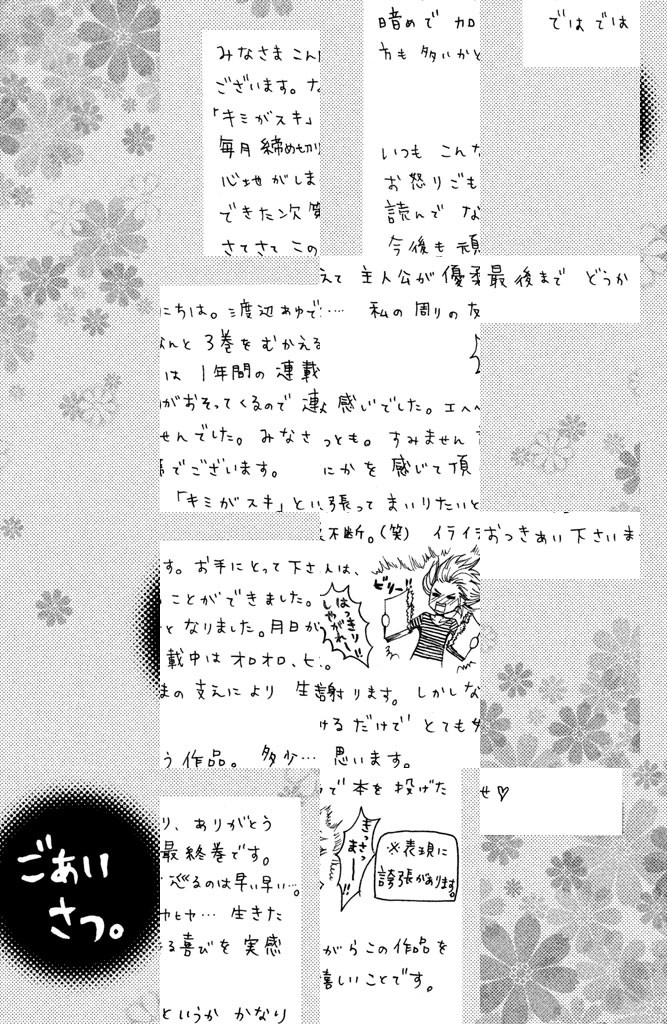 ごあいさつ。
みなさま こんにちは。渡辺あゆです。お手にとって下さり、ありがとう
ございます。なんと 3巻を むかえることができました。最終巻です。
「キミがスキ」は 1年間の 連載となりました。月日が巡るのは早い早い…。
毎月 締め切りがおそってくるので 連載中は オロオロ、ヒヤヒヤ… 生きた
心地がしませんでした。みなさまの 支えにより 生きる喜びを 実感
できた次第でございます。
さてさて この 「キミがスキ」という 作品。多少… というか かなり
暗めで 加えて 主人公が 優柔不断。(笑) イライラで 本を 投げた
方も 多いかと…… 私の 周りの 友人は、
ビリー!!
はっきり
しやがれー!!
きっさ
まぁー!!
※表現に
誇張があります。
いつも こんな 感じでした。エヘヘ。
お怒りごもっとも。すみません 謝ります。しかしながらこの作品を
読んで なにかを 感じて 頂けるだけで とても嬉しいことです。
今後も 頑張って まいりたいと 思います。
ではでは 最後まで どうか おつきあい 下さいませ♡